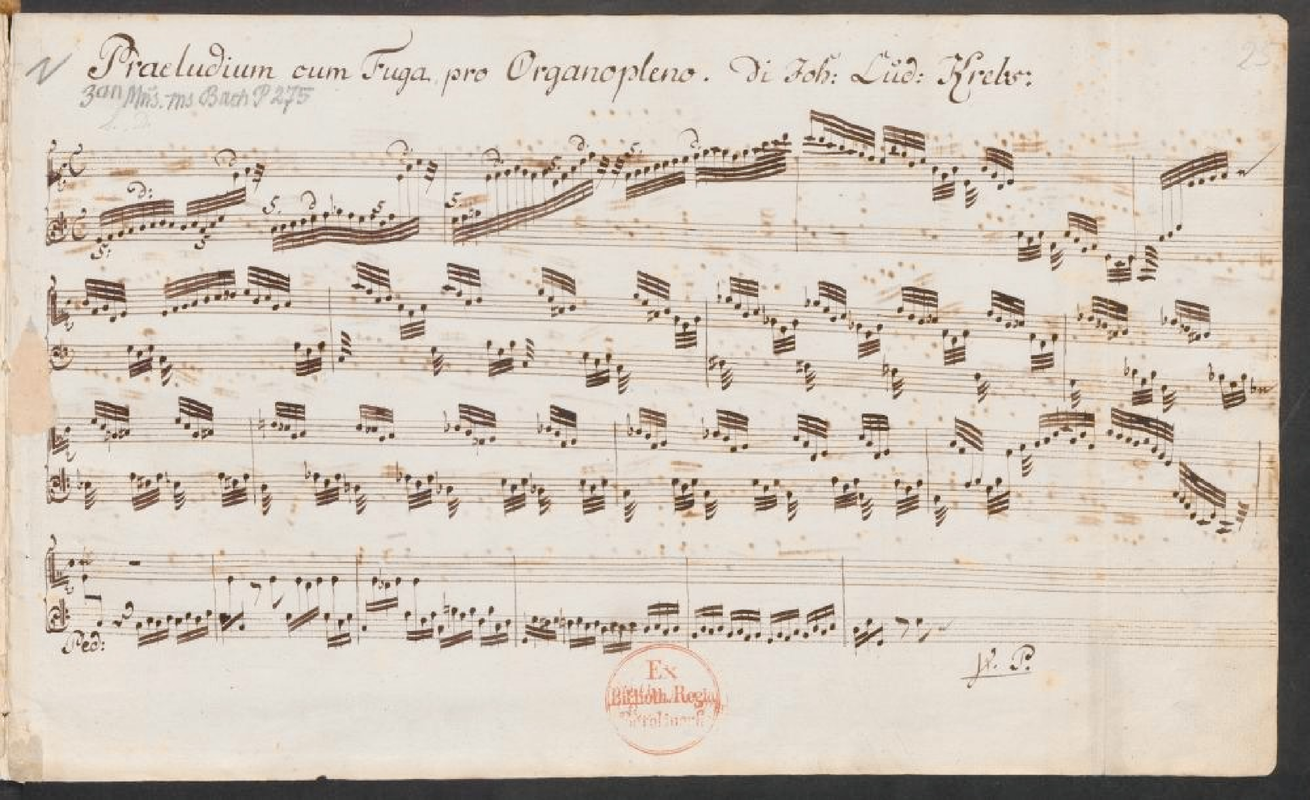 Praeludium cum Fuga pro Organopleno. Di Joh: Lüd: Krebs:
25
Mus. ms Bach P 275
d: d: d: d:
d: 5. 5.
5. 5. 5. d: 5 5.
5:
Ped:
Ex
Biblioth. Regia
Berolinensi